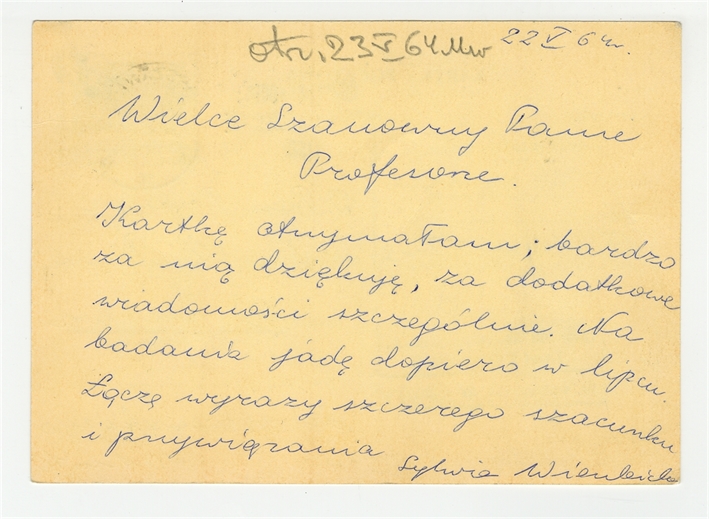 otr. 23 V 64 Mw
22 V 64r.
Wielce Szanowny Panie
Profesorze.
Kartkę otrzymałam; bardzo
za nią dziękuję, za dodatkowe
wiadomości szczególnie. Na
badania jadę dopiero w lipcu.
Łączę wyrazy szczerego szacunku
i przywiązania
Sylwia